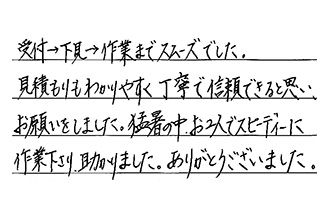 受付→下見→作業までスムーズでした。
見積もりもわかりやすく丁寧で信頼できると思い、
お願いをしました。猛暑の中、お2人でスピーディーに
作業下さり、助かりました。ありがとうございました。